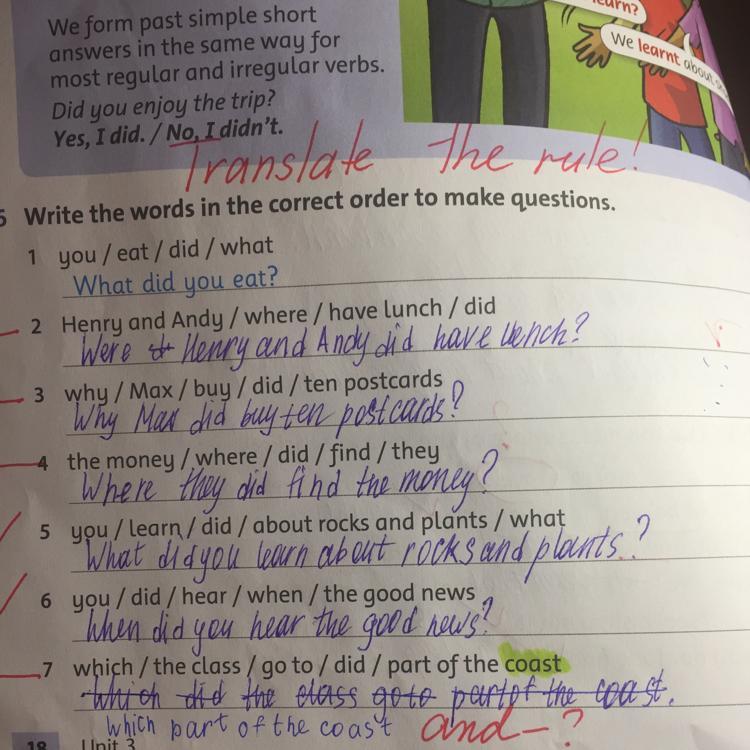 learn?
We learnt about
We form past simple short
answers in the same way for
most regular and irregular verbs.
Did you enjoy the trip?
Yes, I did. / No, I didn't.
Translate the rule!
5 Write the words in the correct order to make questions.
1 you / eat / did / what
What did you eat?
2 Henry and Andy / where / have lunch / did
Were Henry and Andy did have lench?
3 why / Max / buy / did / ten postcards
Why Max did buy ten postcards?
4 the money / where / did / find / they
Where they did find the money?
5 you / learn / did / about rocks and plants / what
What did you learn about rocks and plants.?
6 you / did / hear / when / the good news
When did you hear the good news?
7 which / the class / go to / did / part of the coast
Which did the class go to part of the coast.
which part of the coast and - ?
18 Unit 3